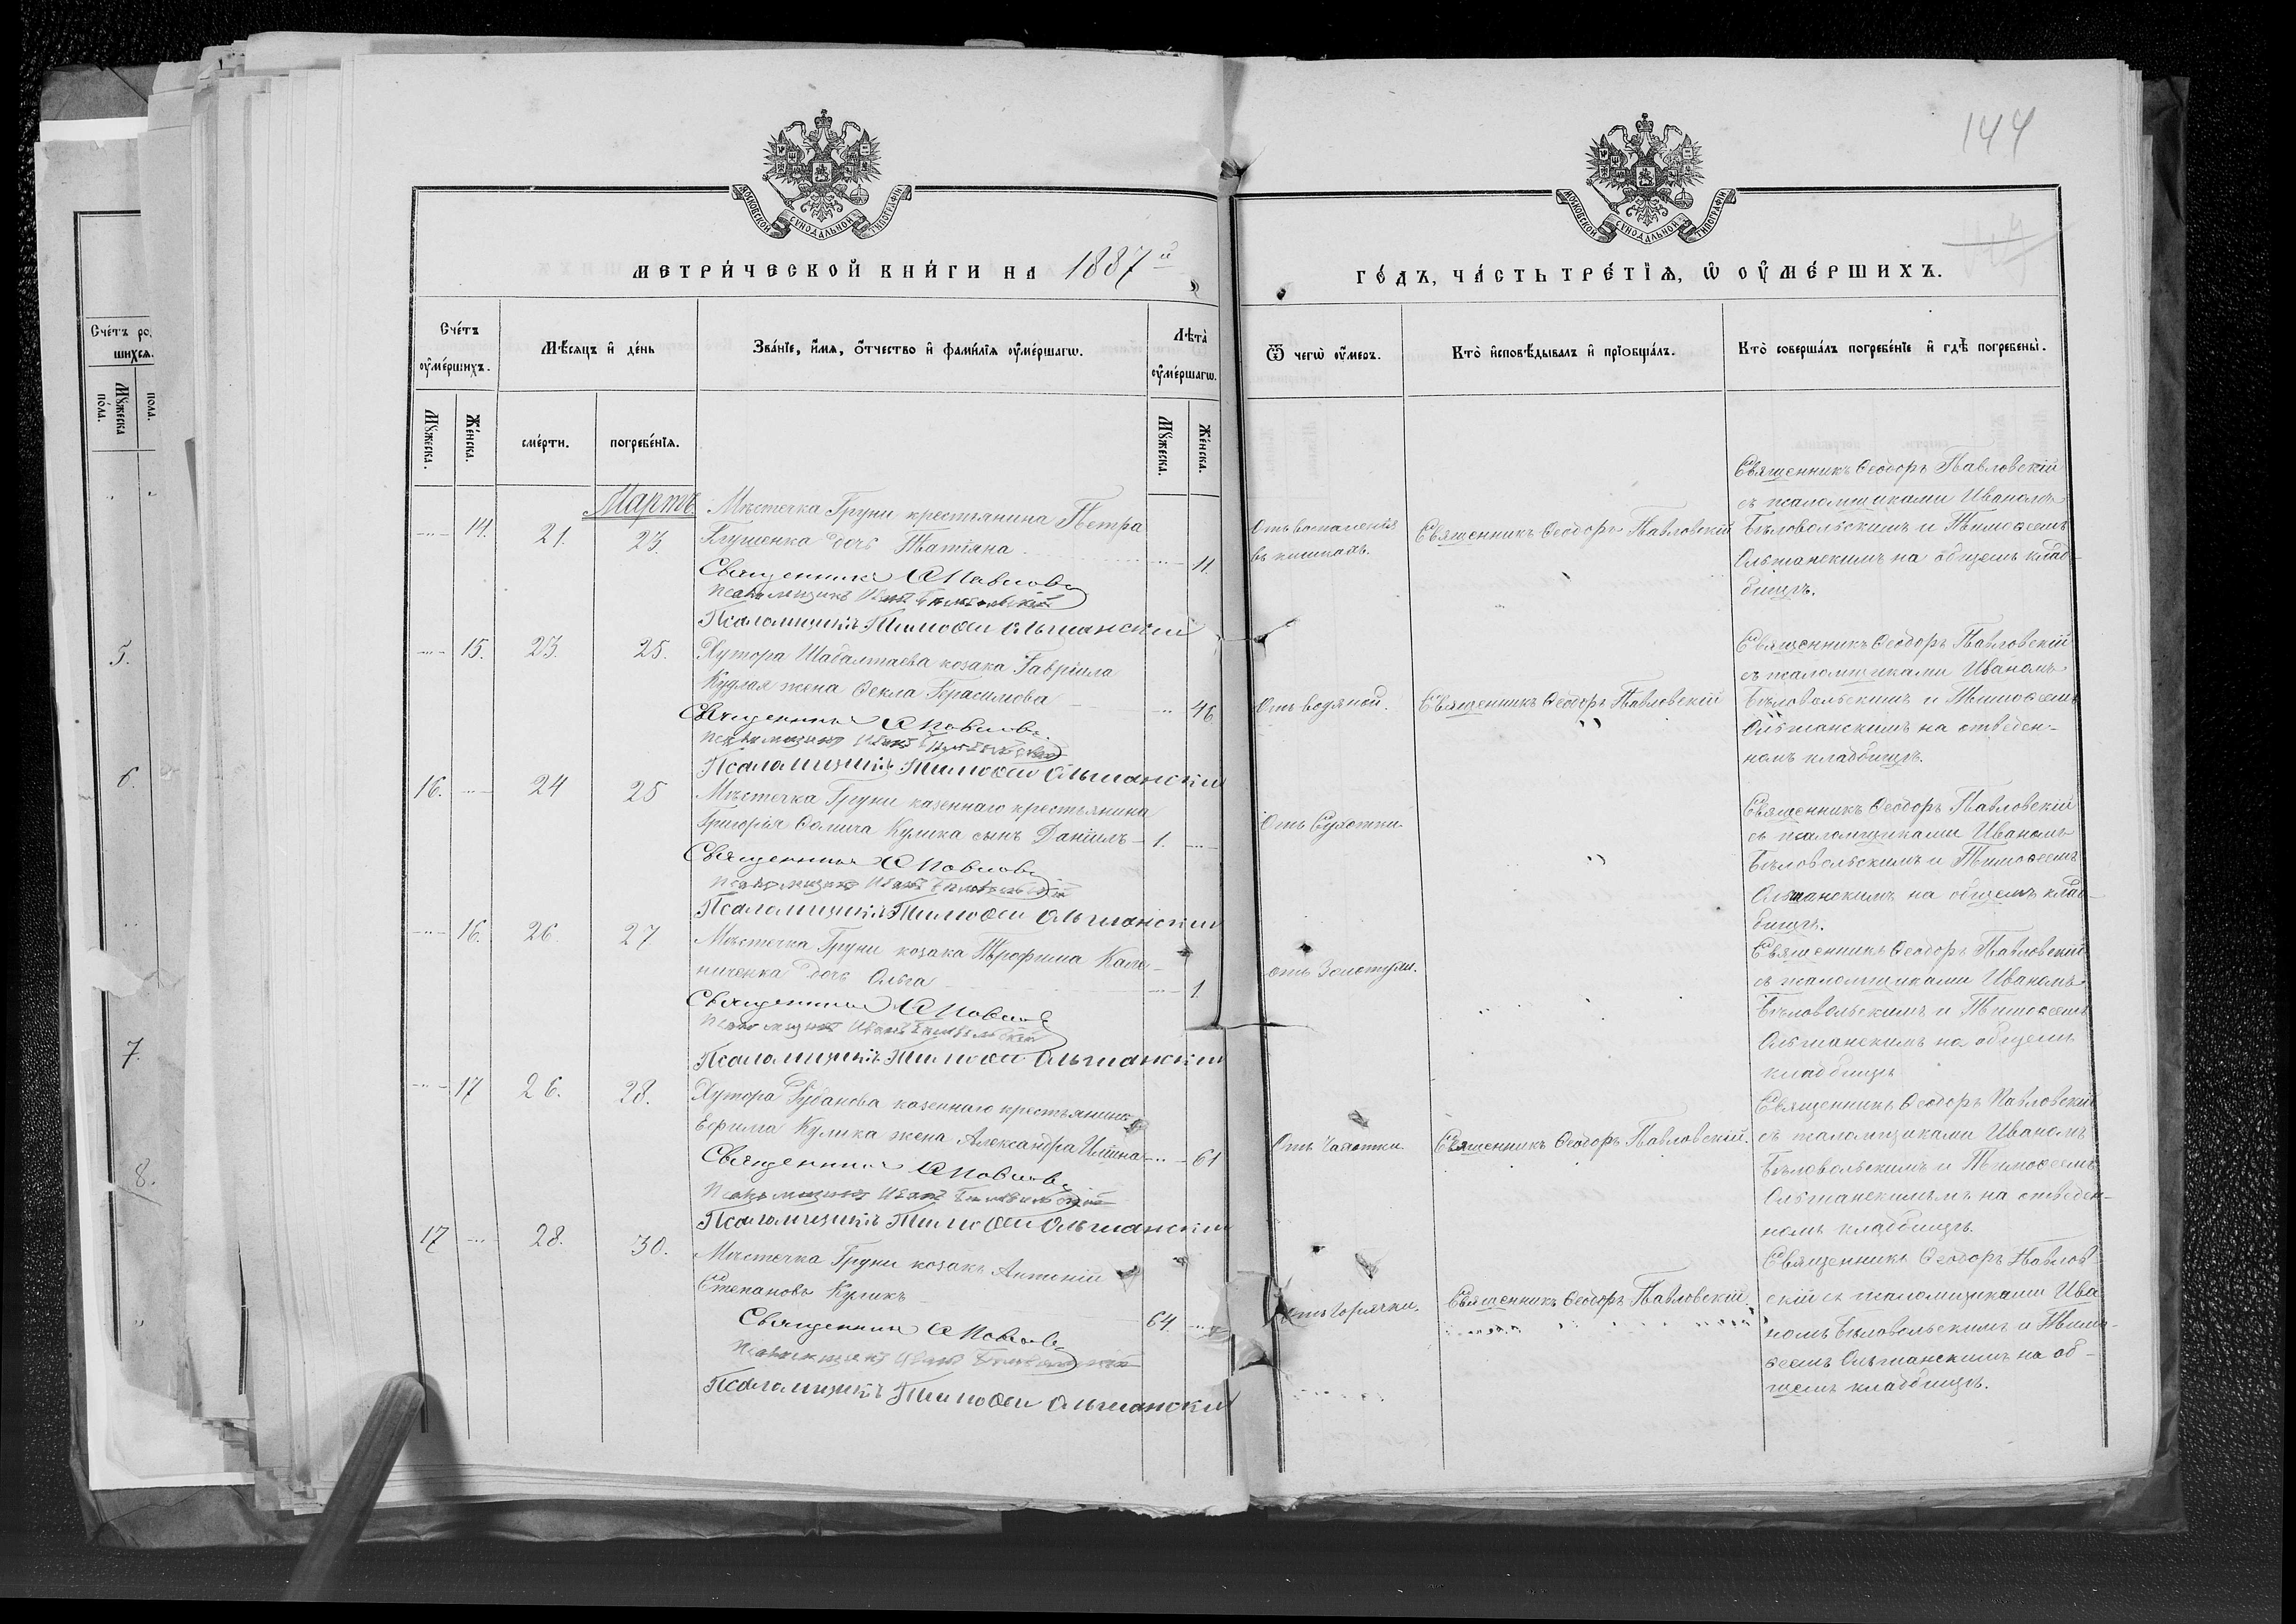 144
МОСКОВСКОЙ СУНОДАЛЬНОЙ ТИПОГРАФІИ
МОСКОВСКОЙ СУНОДАЛЬНОЙ ТИПОГРАФІИ
МЕТРИ́ЧЕСКОЙ КНИ́ГИ НА 1887й
ГО́ДЪ, ЧА́СТЬ ТРЕ́ТІѦ, Ѡ ОУМЕ́РШИХЪ.
Сче́тъ ро
шихсѧ.
Мꙋжеска
по́ла.
пола.
5.
6.
7.
8.
Сче́тъ
оумершихъ.
Мѣ́сѧцъ и де́нь
Зва́нїе, и́мѧ, о́тчество и фами́лїѧ оуме́ршагѡ.
Лѣта̀
оуме́ршагѡ.
Ѿ чегѡ̀ оу́меръ.
Кто̀ исповѣ́дывалъ и прїобща́лъ.
Кто̀ соверша́лъ погребе́нїе и гдѣ̀ погребены̀.
Мꙋжеска.
Же́нска.
сме́рти.
погребе́нїѧ.
Мꙋжеска.
Же́нска.
Мартъ.
14. 21. 23.
Мѣстечка Груни крестьянина Петра
Глущенка дочь Татіана 11
Священникъ Ѳ Павловс
Псаломщикъ Иванъ Бѣловольскій
Псаломщикъ Тимоѳей Ольшанскій
Отъ воспаленія
въ кишкахъ.
Священникъ Ѳеодоръ Павловскій
Священникъ Ѳеодоръ Павловскій
съ псаломщиками Иваномъ
Бѣловольскимъ и Тимоѳеемъ
Ольшанскимъ на общемъ клад-
бищѣ.
15. 23. 25.
Хутора Шабалтаева козака Гавріила
Кудлая жена Ѳекла Герасимова 46
Священникъ Ѳ Павловс
Псаломщикъ Иванъ Бѣловольскій
Псаломщикъ Тимоѳей Ольшанскій
Отъ водяной.
Священникъ Ѳеодоръ Павловскій
Священникъ Ѳеодоръ Павловскій
съ псаломщиками Иваномъ
Бѣловольскимъ и Тимоѳеемъ
Ольшанскимъ на отведен-
номъ кладбищѣ.
16. 24 25
Мѣстечка Груни казеннаго крестьянина
Григорія Ѳомича Кулика сынъ Даніилъ 1.
Священникъ Ѳ Павловс
Псаломщикъ Иванъ Бѣловольскій
Псаломщикъ Тимоѳей Ольшанскій
Отъ Сухотки
Священникъ Ѳеодоръ Павловскій
съ псаломщиками Иваномъ
Бѣловольскимъ и Тимоѳеемъ
Ольшанскимъ на общемъ клад-
бищѣ.
16. 26 27
Мѣстечка Груни козака Трофима Кали-
ниченка дочь Ольга 1.
Священникъ Ѳ Павловс
Псаломщикъ Иванъ Бѣловольскій
Псаломщикъ Тимоѳей Ольшанскій
отъ Золотухи.
Священникъ Ѳеодоръ Павловскій
съ псаломщиками Иваномъ
Бѣловольскимъ и Тимоѳеемъ
Ольшанскимъ на общемъ
кладбищѣ
17 26. 28.
Хутора казеннаго крестьянина
Ефима Кулика жена Александра Ильина 61
Священникъ Ѳ Павловс
Псаломщикъ Иванъ Бѣловольскій
Псаломщикъ Тимоѳей Ольшанскій
Отъ Чахотки
Священникъ Ѳеодоръ Павловскій.
Священникъ Ѳеодоръ Павловскій
съ псаломщиками Иваномъ
Бѣловольскимъ и Тимоѳеемъ
Ольшанскимъ на отведен-
номъ кладбищѣ.
17 28. 30.
Мѣстечка Груни козакъ Антоній
Степановъ Куликъ 64
Священникъ Ѳ Павловс
Псаломщикъ Иванъ Бѣловольскій
Псаломщикъ Тимоѳей Ольшанскій
Отъ Горячки.
Священникъ Ѳеодоръ Павловскій.
Священникъ Ѳеодоръ Павлов-
скій съ псаломщиками Ива
номъ Бѣловольскимъ и Тимо-
ѳеемъ Ольшанскимъ на об-
щемъ кладбищѣ.